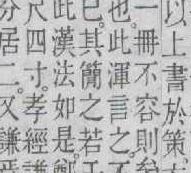 以上書於策
一冊不容則
也此渾言之
此已其簡之若
尺漢法如是鄭
分四寸孝經謙
居二又謙